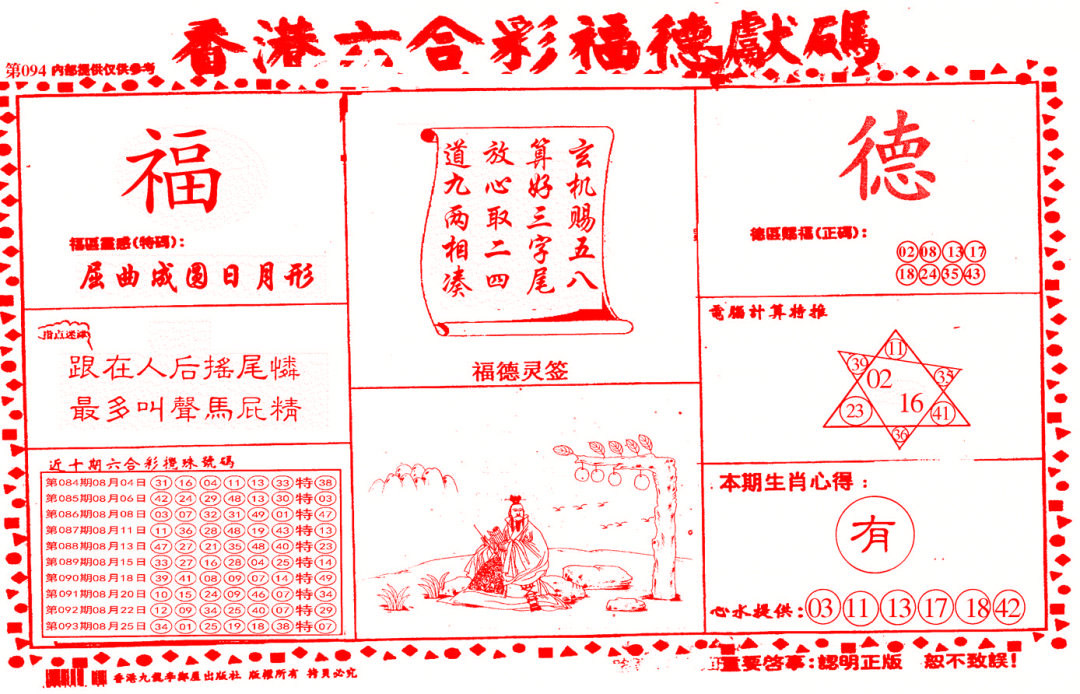 香港六合彩福德獻碼
第094 内部提供仅供参考
福
福區靈感(特碼):
屈曲成圆日月形
指点迷津
跟在人后搖尾憐
最多叫聲馬屁精
近十期六合彩攪珠號碼
第084期08月04日 31 16 04 11 13 33 特 38
第085期08月06日 42 24 29 48 13 30 特 03
第086期08月08日 03 07 32 31 49 01 特 47
第087期08月11日 11 36 28 48 19 43 特 13
第088期08月13日 47 27 21 35 48 40 特 23
第089期08月15日 33 27 16 28 04 25 特 14
第090期08月18日 39 41 08 09 07 14 特 49
第091期08月20日 10 15 24 09 46 07 特 34
第092期08月22日 12 09 34 25 40 07 特 29
第093期08月25日 34 01 25 19 18 38 特 07
玄机赐五八
算好三字尾
放心取二四
道九两相凑
福德灵签
德
德區賜福(正碼):
02 08 13 17
18 24 35 43
電腦計算特推
11
39 02 35
23 16 41
36
本期生肖心得:
有
心水提供: 03 11 13 17 18 42
香港九龍李鄭屋出版社 版權所有 拷貝必究
重要啓事:認明正版 恕不致誤!